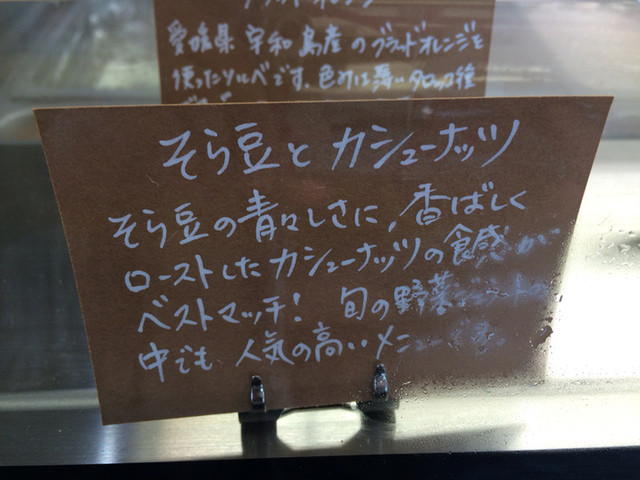 愛媛県宇和島産のブラッドオレンジを
使ったソルベです。色めは薄いタロッコ種
そら豆とカシューナッツ
そら豆の青々しさに,香ばしく
ローストしたカシューナッツの食感が
ベストマッチ! 旬の野菜ジェラートの
中でも人気の高いメニューです。